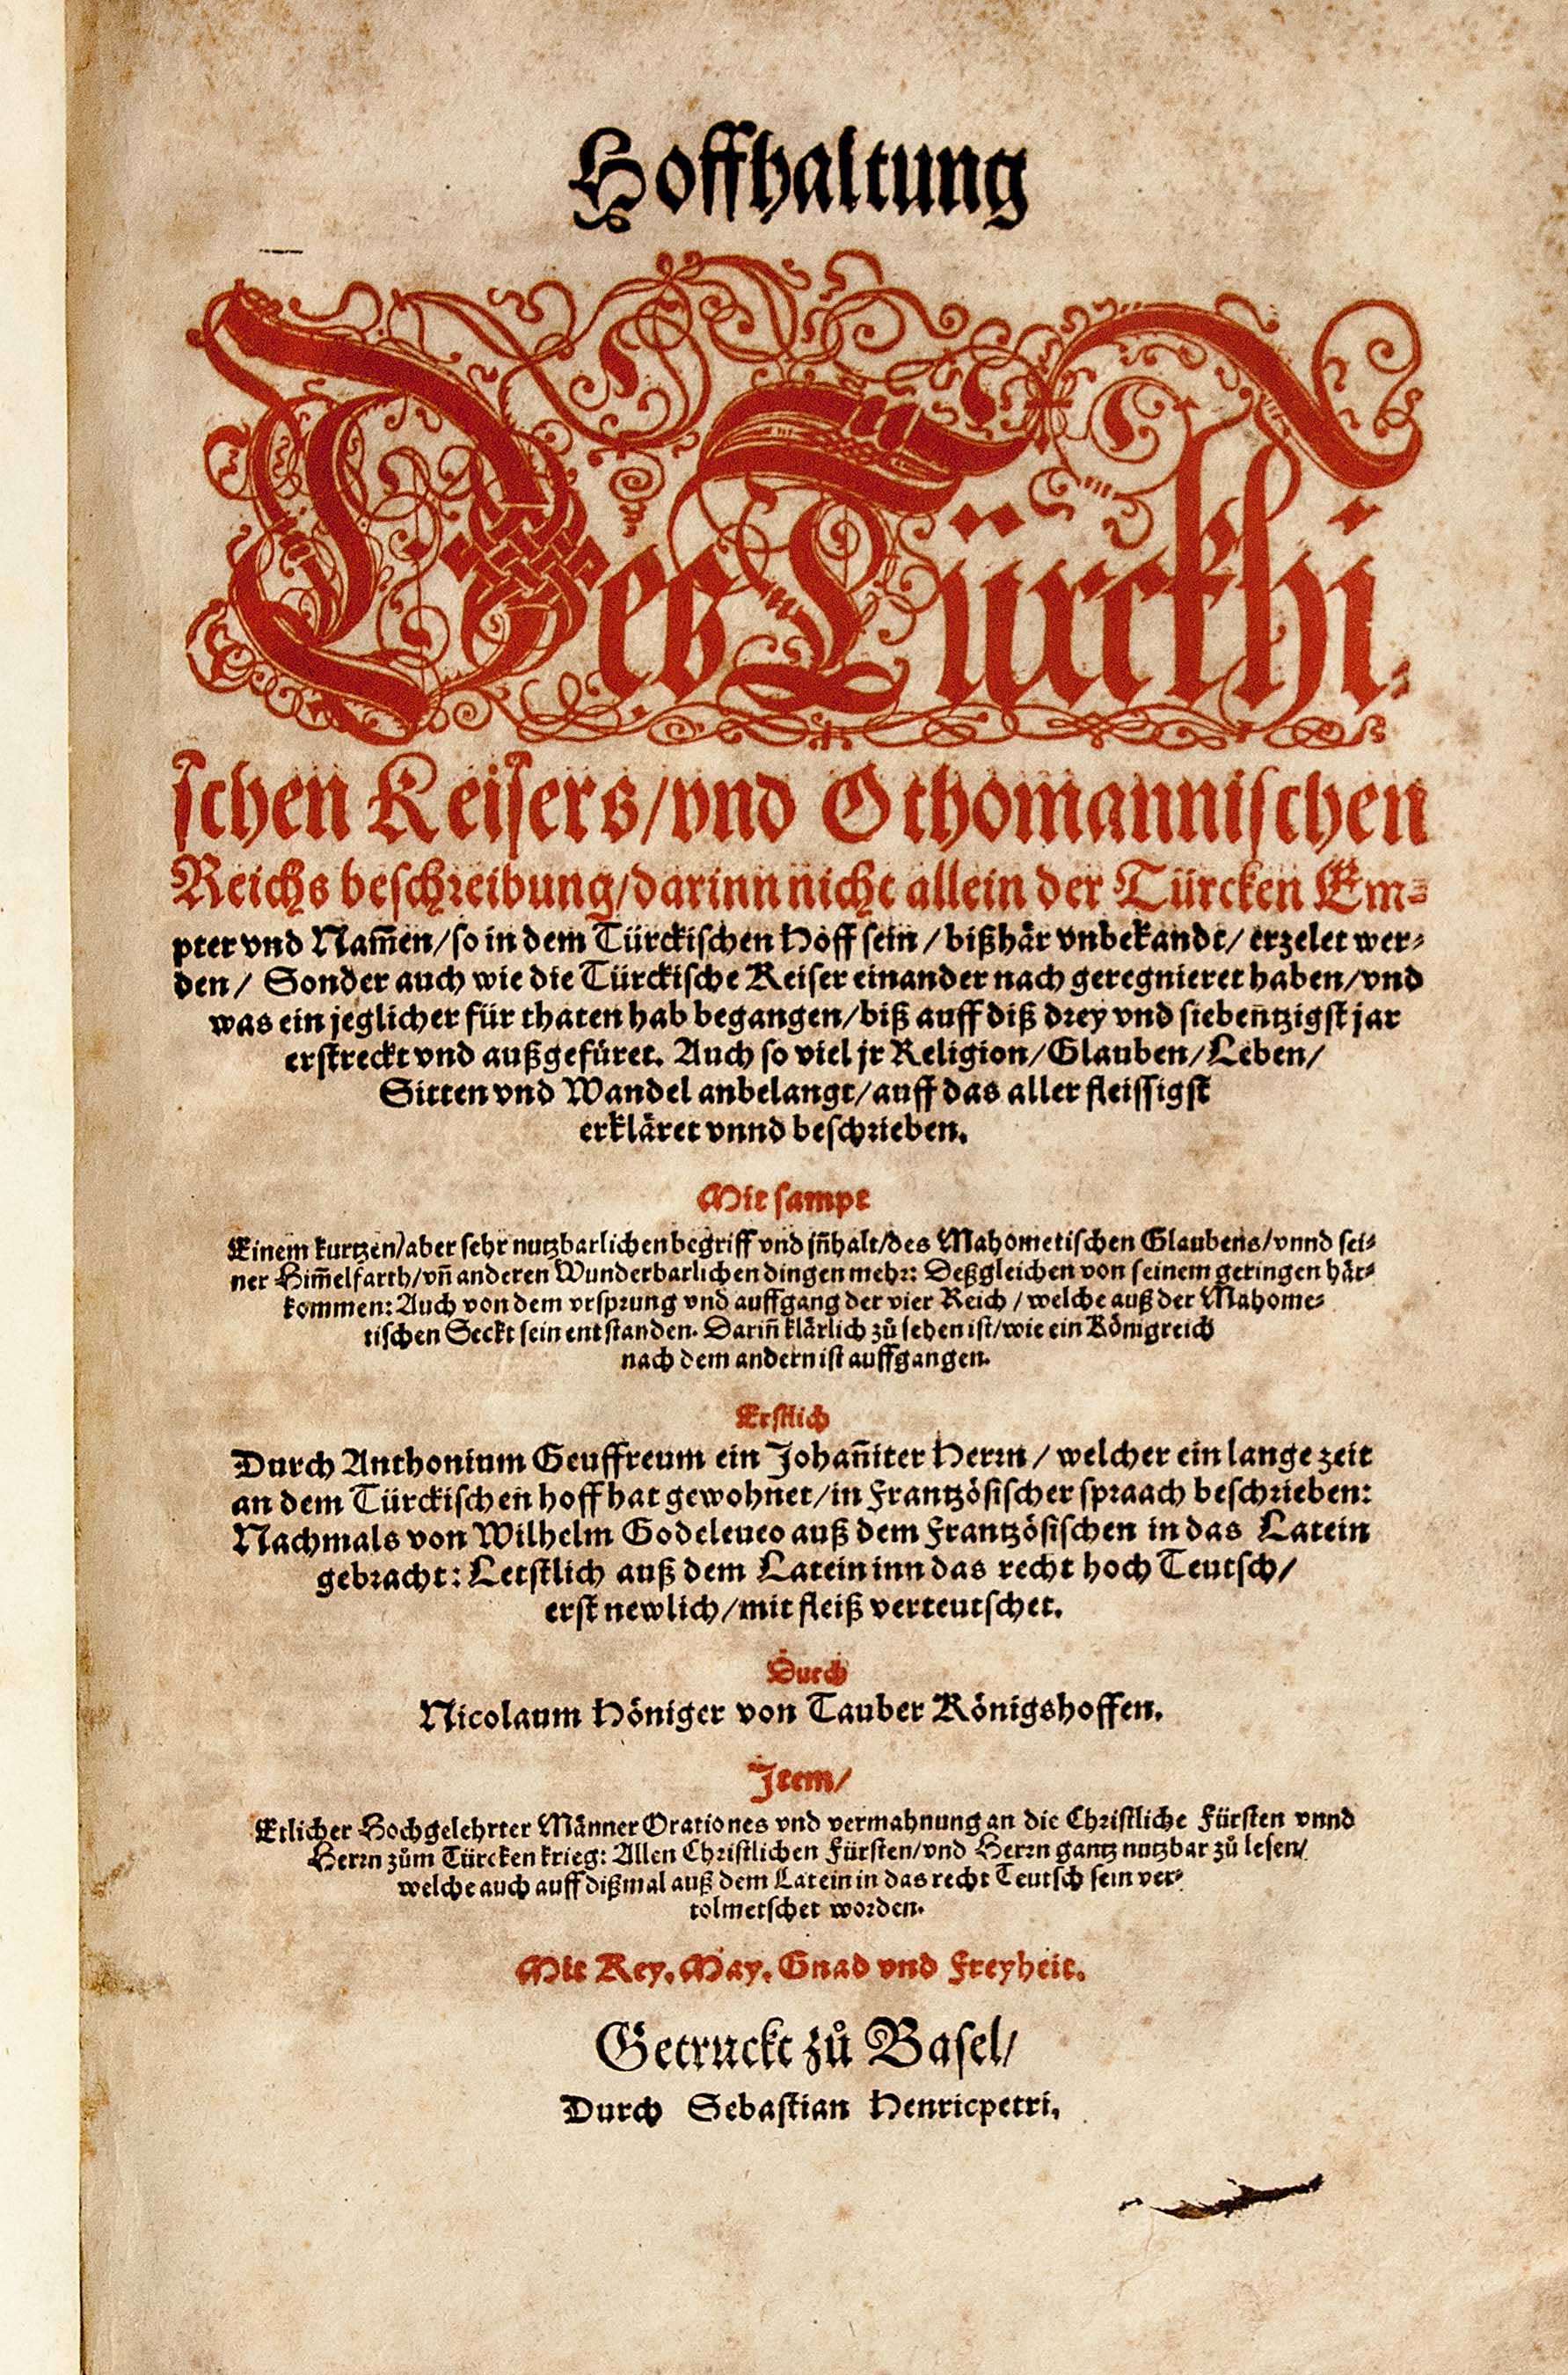 Hoffhaltung
Des Türckhi⸗
ſchen Keiſers/vnd Othomanniſchen
Reichs beſchreibung/darinn nicht allein der Türcken Em⸗
pter vnd Nam̃en/ſo in dem Türckiſchen Hoff ſein/bißhär vnbekandt/erzelet wer⸗
den/ Sonder auch wie die Türckiſche Keiſer einander nach geregnieret haben/vnd
was ein jeglicher für thaten hab begangen/biß auff diß drey vnd ſiebenntzigſt jar
erſtreckt vnd außgefüret. Auch ſo viel jr Religion/Glauben/Leben/
Sitten vnd Wandel anbelangt/auff das aller fleiſſigſt
erkläret vnnd beſchrieben.
Mit ſampt
Einem kurtzen/aber ſehr nutzbarlichen begriff vnd jñhalt/des Mahometiſchen Glaubens/vnnd ſei⸗
ner Him̃elfarth/vñ anderen Wunderbarlichen dingen mehr: Deßgleichen von ſeinem geringen här⸗
kommen: Auch von dem vrſprung vnd auffgang der vier Reich/welche auß der Mahome⸗
tiſchen Seckt ſein entſtanden. Dariñ klärlich zů ſehen iſt/wie ein Königreich
nach dem andern iſt auffgangen.
Erſtlich
Durch Anthonium Geuffreum ein Johañiter Herrn/welcher ein lange zeit
an dem Türckiſchen hoff hat gewohnet/in Frantzöſiſcher ſpraach beſchrieben:
Nachmals von Wilhelm Godeleueo auß dem Frantzöſiſchen in das Latein
gebracht: Letſtlich auß dem Latein inn das recht hoch Teutſch/
erſt newlich/mit fleiß verteutſchet.
Durch
Nicolaum Höniger von Tauber Königshoffen.
Item/
Etlicher Hochgelehrter Männer Orationes vnd vermahnung an die Chriſtliche Fürſten vnnd
Herrn zům Türcken krieg: Allen Chriſtlichen Fürſten/vnd Herrn gantz nutzbar zů leſen/
welche auch auff dißmal auß dem Latein in das recht Teutſch ſein ver⸗
tolmetſchet worden.
Mit Key. May. Gnad vnd Freyheit.
Getruckt zů Baſel/
Durch Sebaſtian Henricpetri.